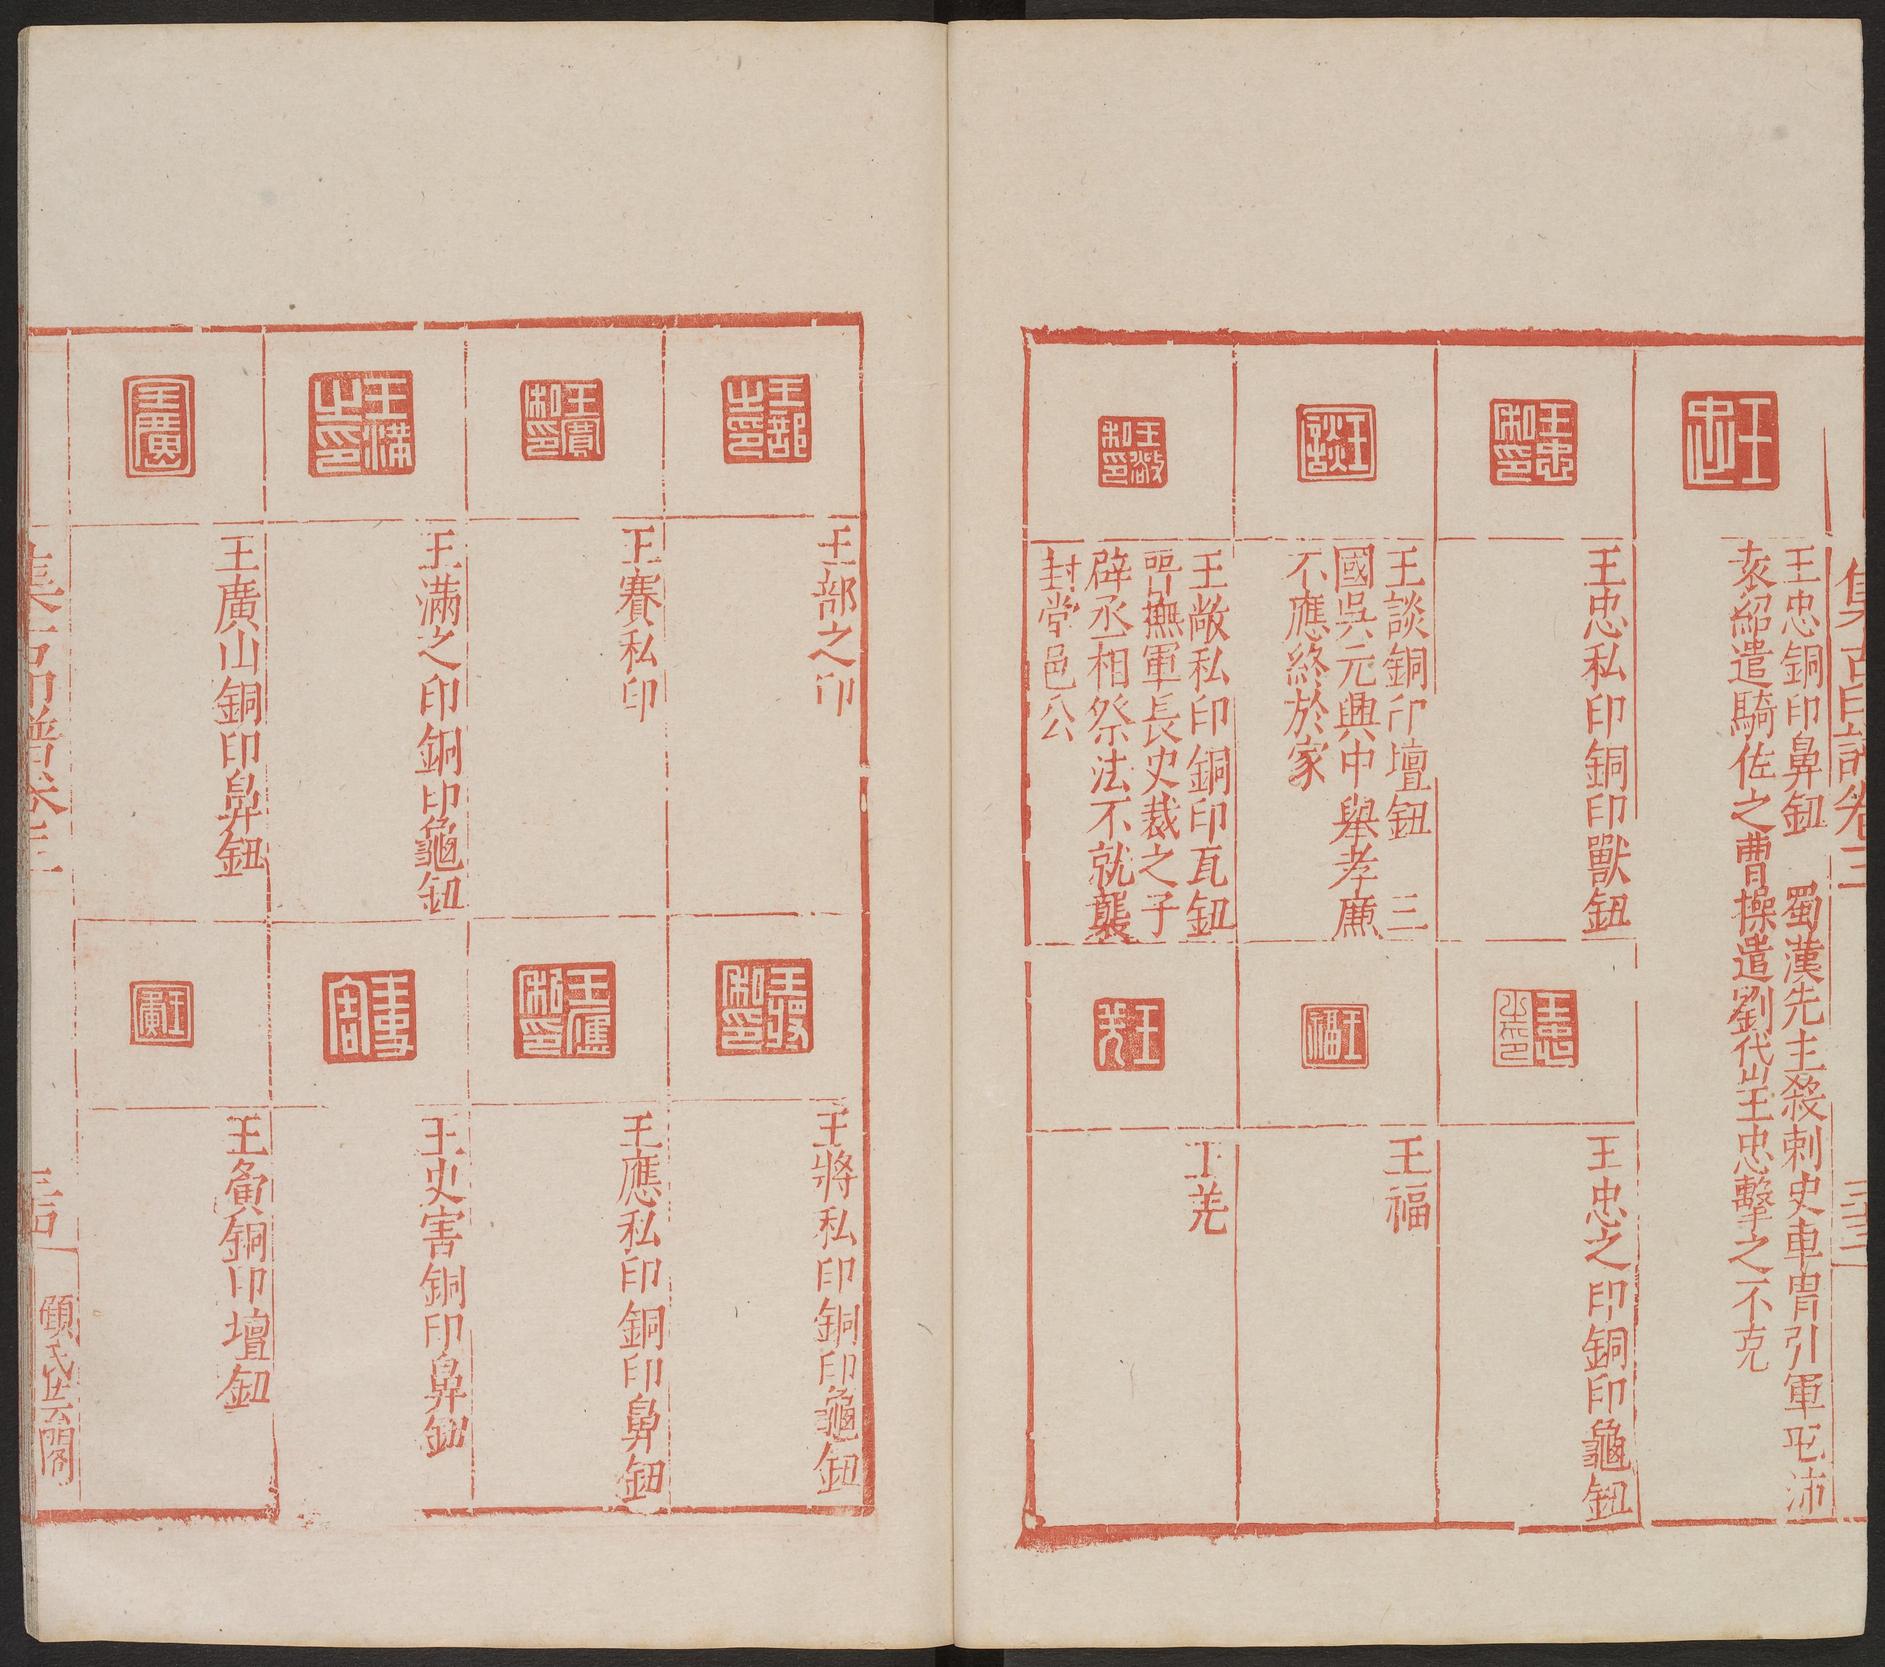 集古印譜卷三
三十三
王忠
王忠銅印鼻鈕 蜀漢先主殺刺史車冑引軍屯沛
袁紹遣騎佐之曹操遣劉岱王忠擊之不克
王忠私印
王忠私印銅印獸鈕
王忠之印
王忠之印銅印龜鈕
王談
王談銅印壇鈕 三
國吳元興中舉孝廉
不應終於家
王福
王福
王敞私印
王敞私印銅印瓦鈕
晉撫軍長史裁之子
辟丞相祭法不就襲
封堂邑公
王羌
王羌
王部之印
王部之印
王將私印
王將私印銅印龜鈕
王賽私印
王賽私印
王應私印
王應私印銅印鼻鈕
王滿之印
王滿之印銅印龜鈕
王史害
王史害銅印鼻鈕
王廣
王廣山銅印鼻鈕
王
銅印壇鈕
集古印譜卷三
顧氏芸閣